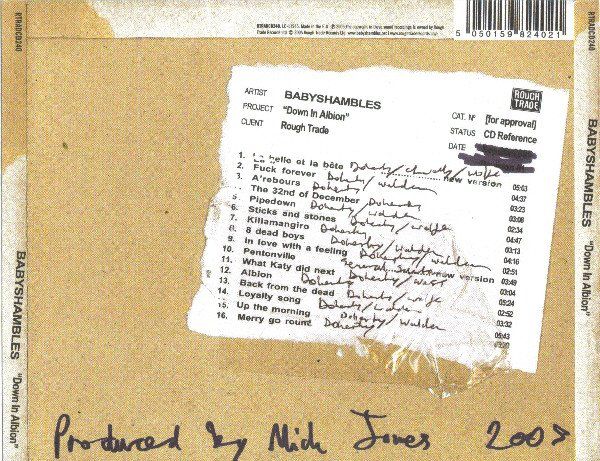 RTRADCD240
5 050159 824021
RTRADCD240
ROUGH TRADE
ARTIST BABYSHAMBLES
PROJECT "Down In Albion"
CLIENT Rough Trade
CAT. Nº [for approval]
STATUS CD Reference
DATE
1. La belle et la bête Doherty/chevalley/wolfe 05:03
2. Fuck forever Doherty/walden new version 04:37
3. A'rebours Doherty/walden 03:23
4. The 32nd of December Doherty 03:08
5. Pipedown Doherty/walden 02:34
6. Sticks and stones Doherty/wolfe 04:47
7. Killamangiro Doherty 03:13
8. 8 dead boys Doherty/Walden 04:16
9. In love with a feeling Doherty/Walden 02:51
10. Pentonville General 03:49
11. What Katy did next new version 03:04
12. Albion Doherty 05:24
13. Back from the dead Doherty/wolfe 02:52
14. Loyalty song Doherty/walden 03:32
15. Up the morning Doherty/Walden 05:43
16. Merry go round Doherty
BABYSHAMBLES "Down In Albion"
BABYSHAMBLES "Down In Albion"
Produced by Mick Jones 2005